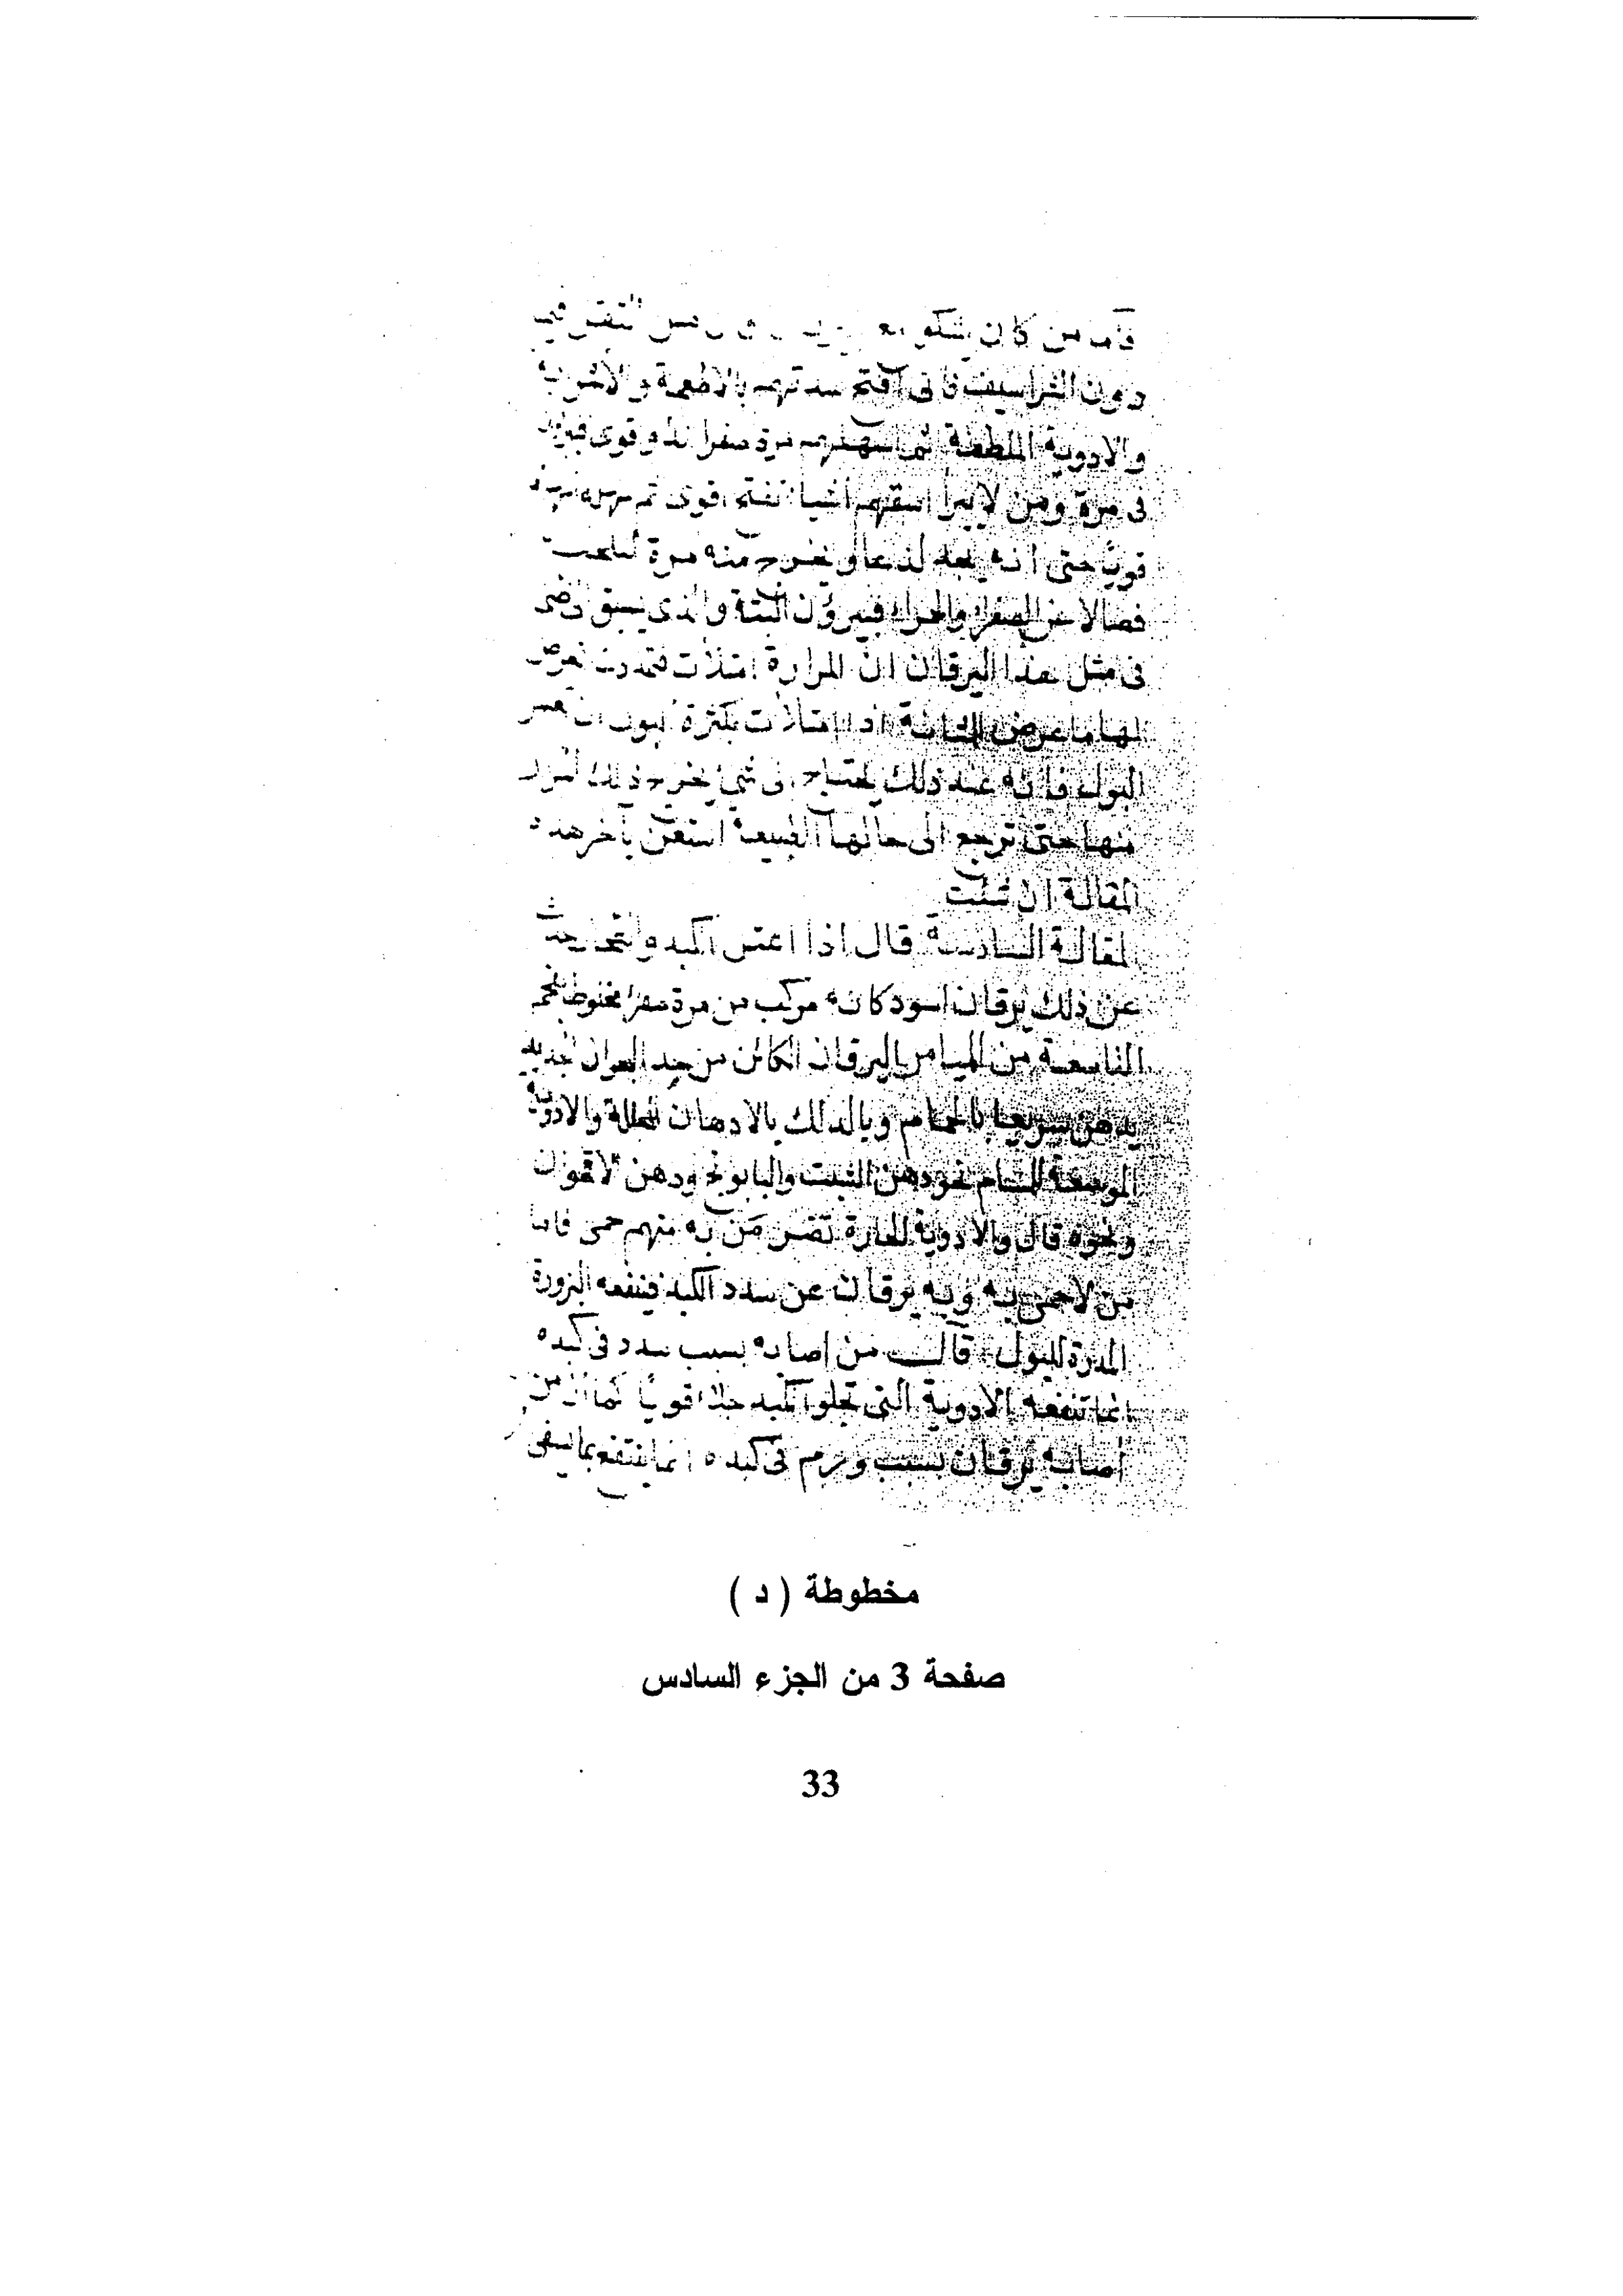 فأما من كان يشكو الثقل فيما
دون الشراسيف فانى افتح سددهم بالاطعمة والاشربة
والادوية الملطفة ثم اسهلهم مرة صفراء بدواء قوى فيبرؤن
فى مرة ومن لا يبرأ اسقيهم أشيا تفتح اقوى ثم مسهلا
قويا حتى أنه يجد لذعا ويخرج منه مرة
فضلا عن الصفراء والحمراء فيبرؤن البتة والذى يسبق
فى مثل هذا اليرقان ان المرارة امتلأت فتمددت فعرض
لها ما عرض للمثانة اذا امتلأت بكثرة البول ان يعسر
البول فانه عند ذلك يحتاج الى شئ يخرج ذلك المرار
منها حتى ترجع الى حالها الطبيعة استعن بآخر هذه
المقالة ان شئت
المقالة السادسة قال اذا اعتل الكبد والطحال حدث
عن ذلك يرقان اسود كانه مركب من مرة صفرا مخلوط بفحم
التاسعة من الميامر اليرقان الكائن من جيد البحران
يذهب سريعا بالحمام وبالدلك بالادهان المحللة والادوية
الموسعة للمسام نحو دهن الشبت والبابونج ودهن الاقحوان
ونحوه قال والادوية الحارة تضر من به منهم حمى فاما
من لا حمى به وبه يرقان عن سدد الكبد فينفعه البزورة
المدرة للبول قال من اصابه بسبب سدد فى كبده
انما تنفعه الادوية التى تجلو الكبد جلاء قويا كما ان من
أصابه يرقان بسبب ورم فى كبده انما ينتفع بما يسقى
مخطوطة ( د )
صفحة 3 من الجزء السادس
33